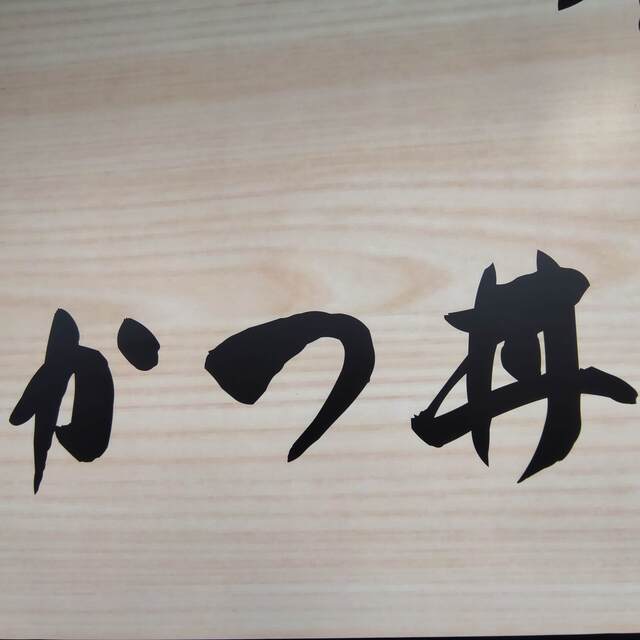 かつ丼